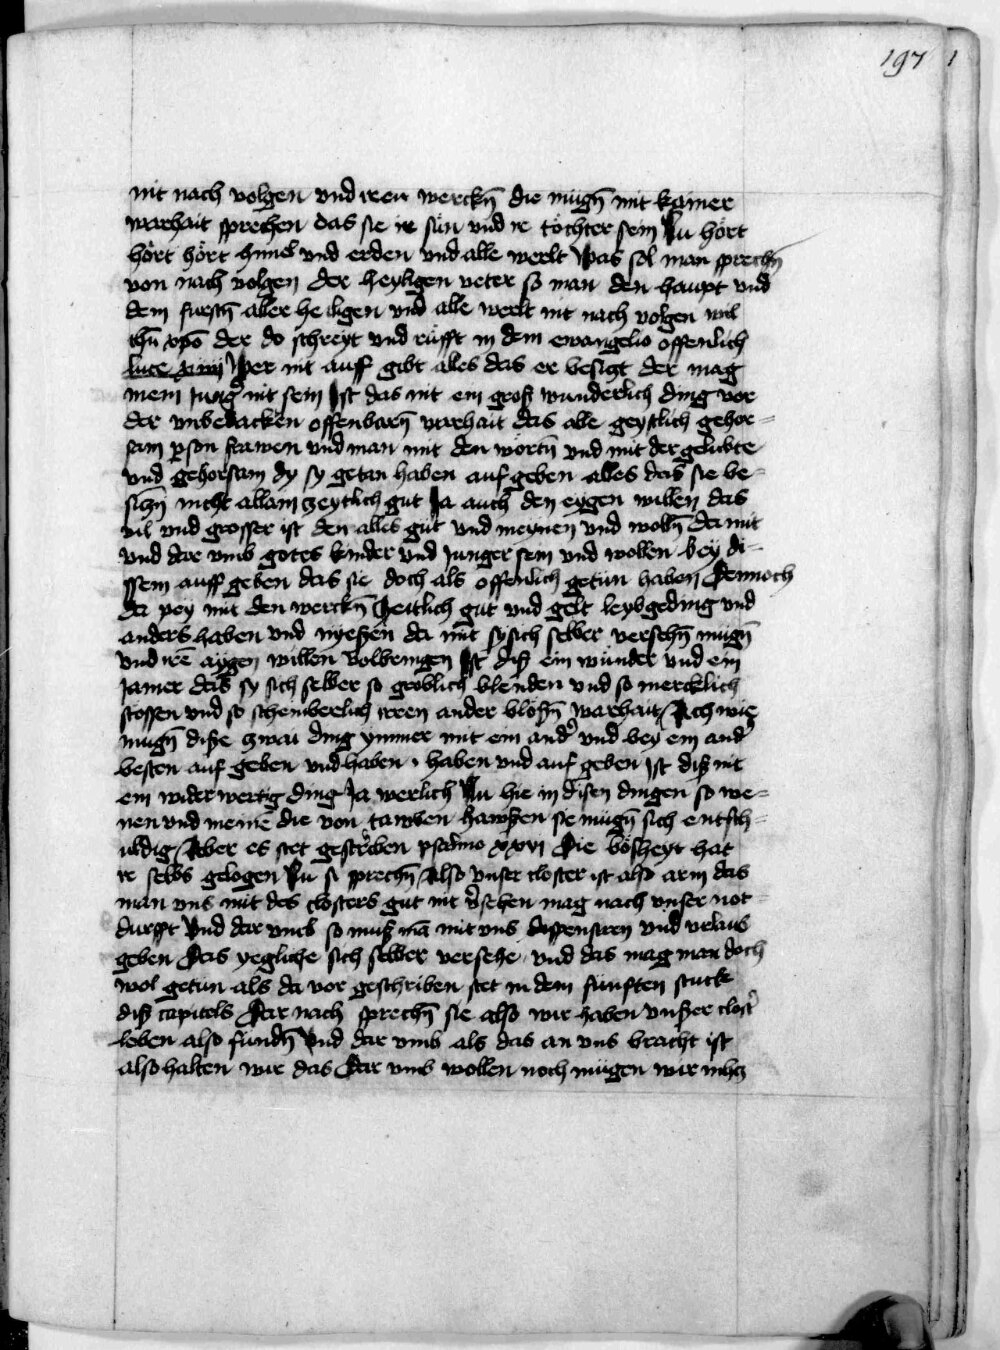 197 1
nit nach volgen vnd iren werckn̄ die mügn̄ mit kainer
warhait sprechen das sie ir sün vnd ir töchter sein Nu hört
hört hört himel vnd erden vnd alle werlt Was sol man sprechn̄
von nach volgen der heyligen veter so man den haupt vnd
dem furstn̄ aller heiligen vnd alle werlt nit nach volgen wil
ihū xp̄o der do schreyt vnd rüfft in dem ewangelio offenlich
luce xiiij Wer nit auff gibt alles das er besiczt der mag
mein Jung̉ nit sein Ist das nit ein groß wunderlich ding vor
der vnbedackten offenbarn̄ warhait das alle geystlich gehor-
sam p̱son frawen vnd man mit den wortn̄ vnd mit der gelubte
vnd gehorsam dy sy getan haben auf geben alles das sie be-
siczn̄ nicht allain zeytlich gut Ja auch den eygen willen das
vil vnd grosser ist den alles gut vnd meynen vnd wolln̄ da mit
vnd dar vmb gotes kinder vnd Junger sein vnd wollen bey di-
ssem auff geben das sie doch als offenlich getün haben Dennoch
da pey mit den werckn̄ Zeitlich gut vnd gelt leybgeding vnd
anders haben vnd nyeßen da mit sy sich selber versehn̄ mügn̄
vnd irē aygen willen volbringen Ist diß ein wunder vnd ein
Jamer das sy sich selber so groblich blenden vnd so mercklich
stossen vnd so scheinberlich irren an der bloßn̄ warhait Ach wie
mügn̄ diße zwai ding ymmer mit ein and̉ vnd bey ein and̉
besten auf geben vnd haben haben vnd auf geben Ist diß nit
ein wider wertig ding Ja werlich Nu hie in disen dingen so we-
nen vnd meinē die von tawben hawßen sie mügn̄ sich entsch-
uldig Aber es stet gescriben psalmo xxvi Die bösheyt hat
ir selbs gelogen Nu si sprechn̄ Also vnser closter ist also arm das
man vns mit des closters gut nit v̉sehen mag nach vnser not-
durfft Vnd dar vmb so muß mā mit vns dispensiren vnd vrlaub
geben Das yegliche sich selber versehe vnd das mag man doch
wol getün als da vor geschriben stet in dem fünften stuck
diß capitels Dar nach sprechn̄ sie also wir haben vnßer clost̉
leben also fundn̄ Vnd dar vmb als das an vns bracht ist
also halten wir das Dar vmb wollen noch mügen wir nihcz